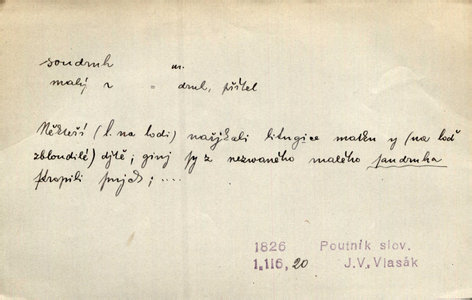 soudruh m.
malý z = druh, přítel
Někteří (l. na lodi) nařjkali litugjce matku y (na loď
zbloudilé) djtě; ginj sy z nezwaného malého saudruha
ztropili smjch; ....
1826 Poutník slov.
1.116, 20 J.V. Vlasák